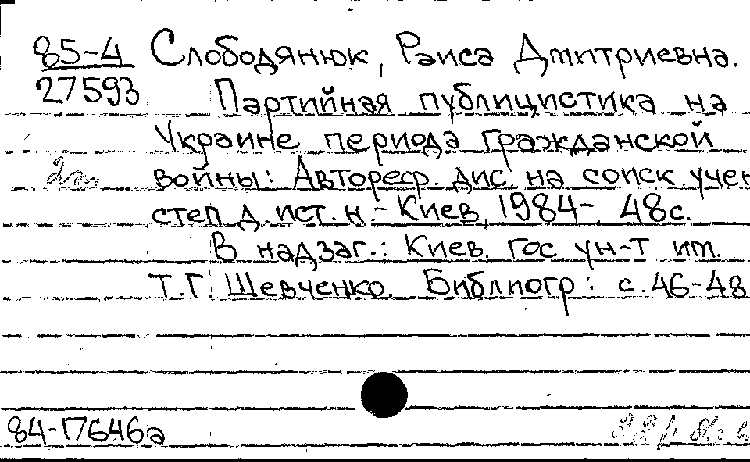 85-4 Слободянюк, Раиса Дмитриевна.
27593 Партийная публицистика на
Украине периода гражданской
войны: Автореф. дис. на соиск учен
степ д. ист. н - Киев, 1984-, 48с.
В надзаг.: Киев. гос ун-т им.
Т.Г. Шевченко. Библиогр: с. 46-48
84-17646а